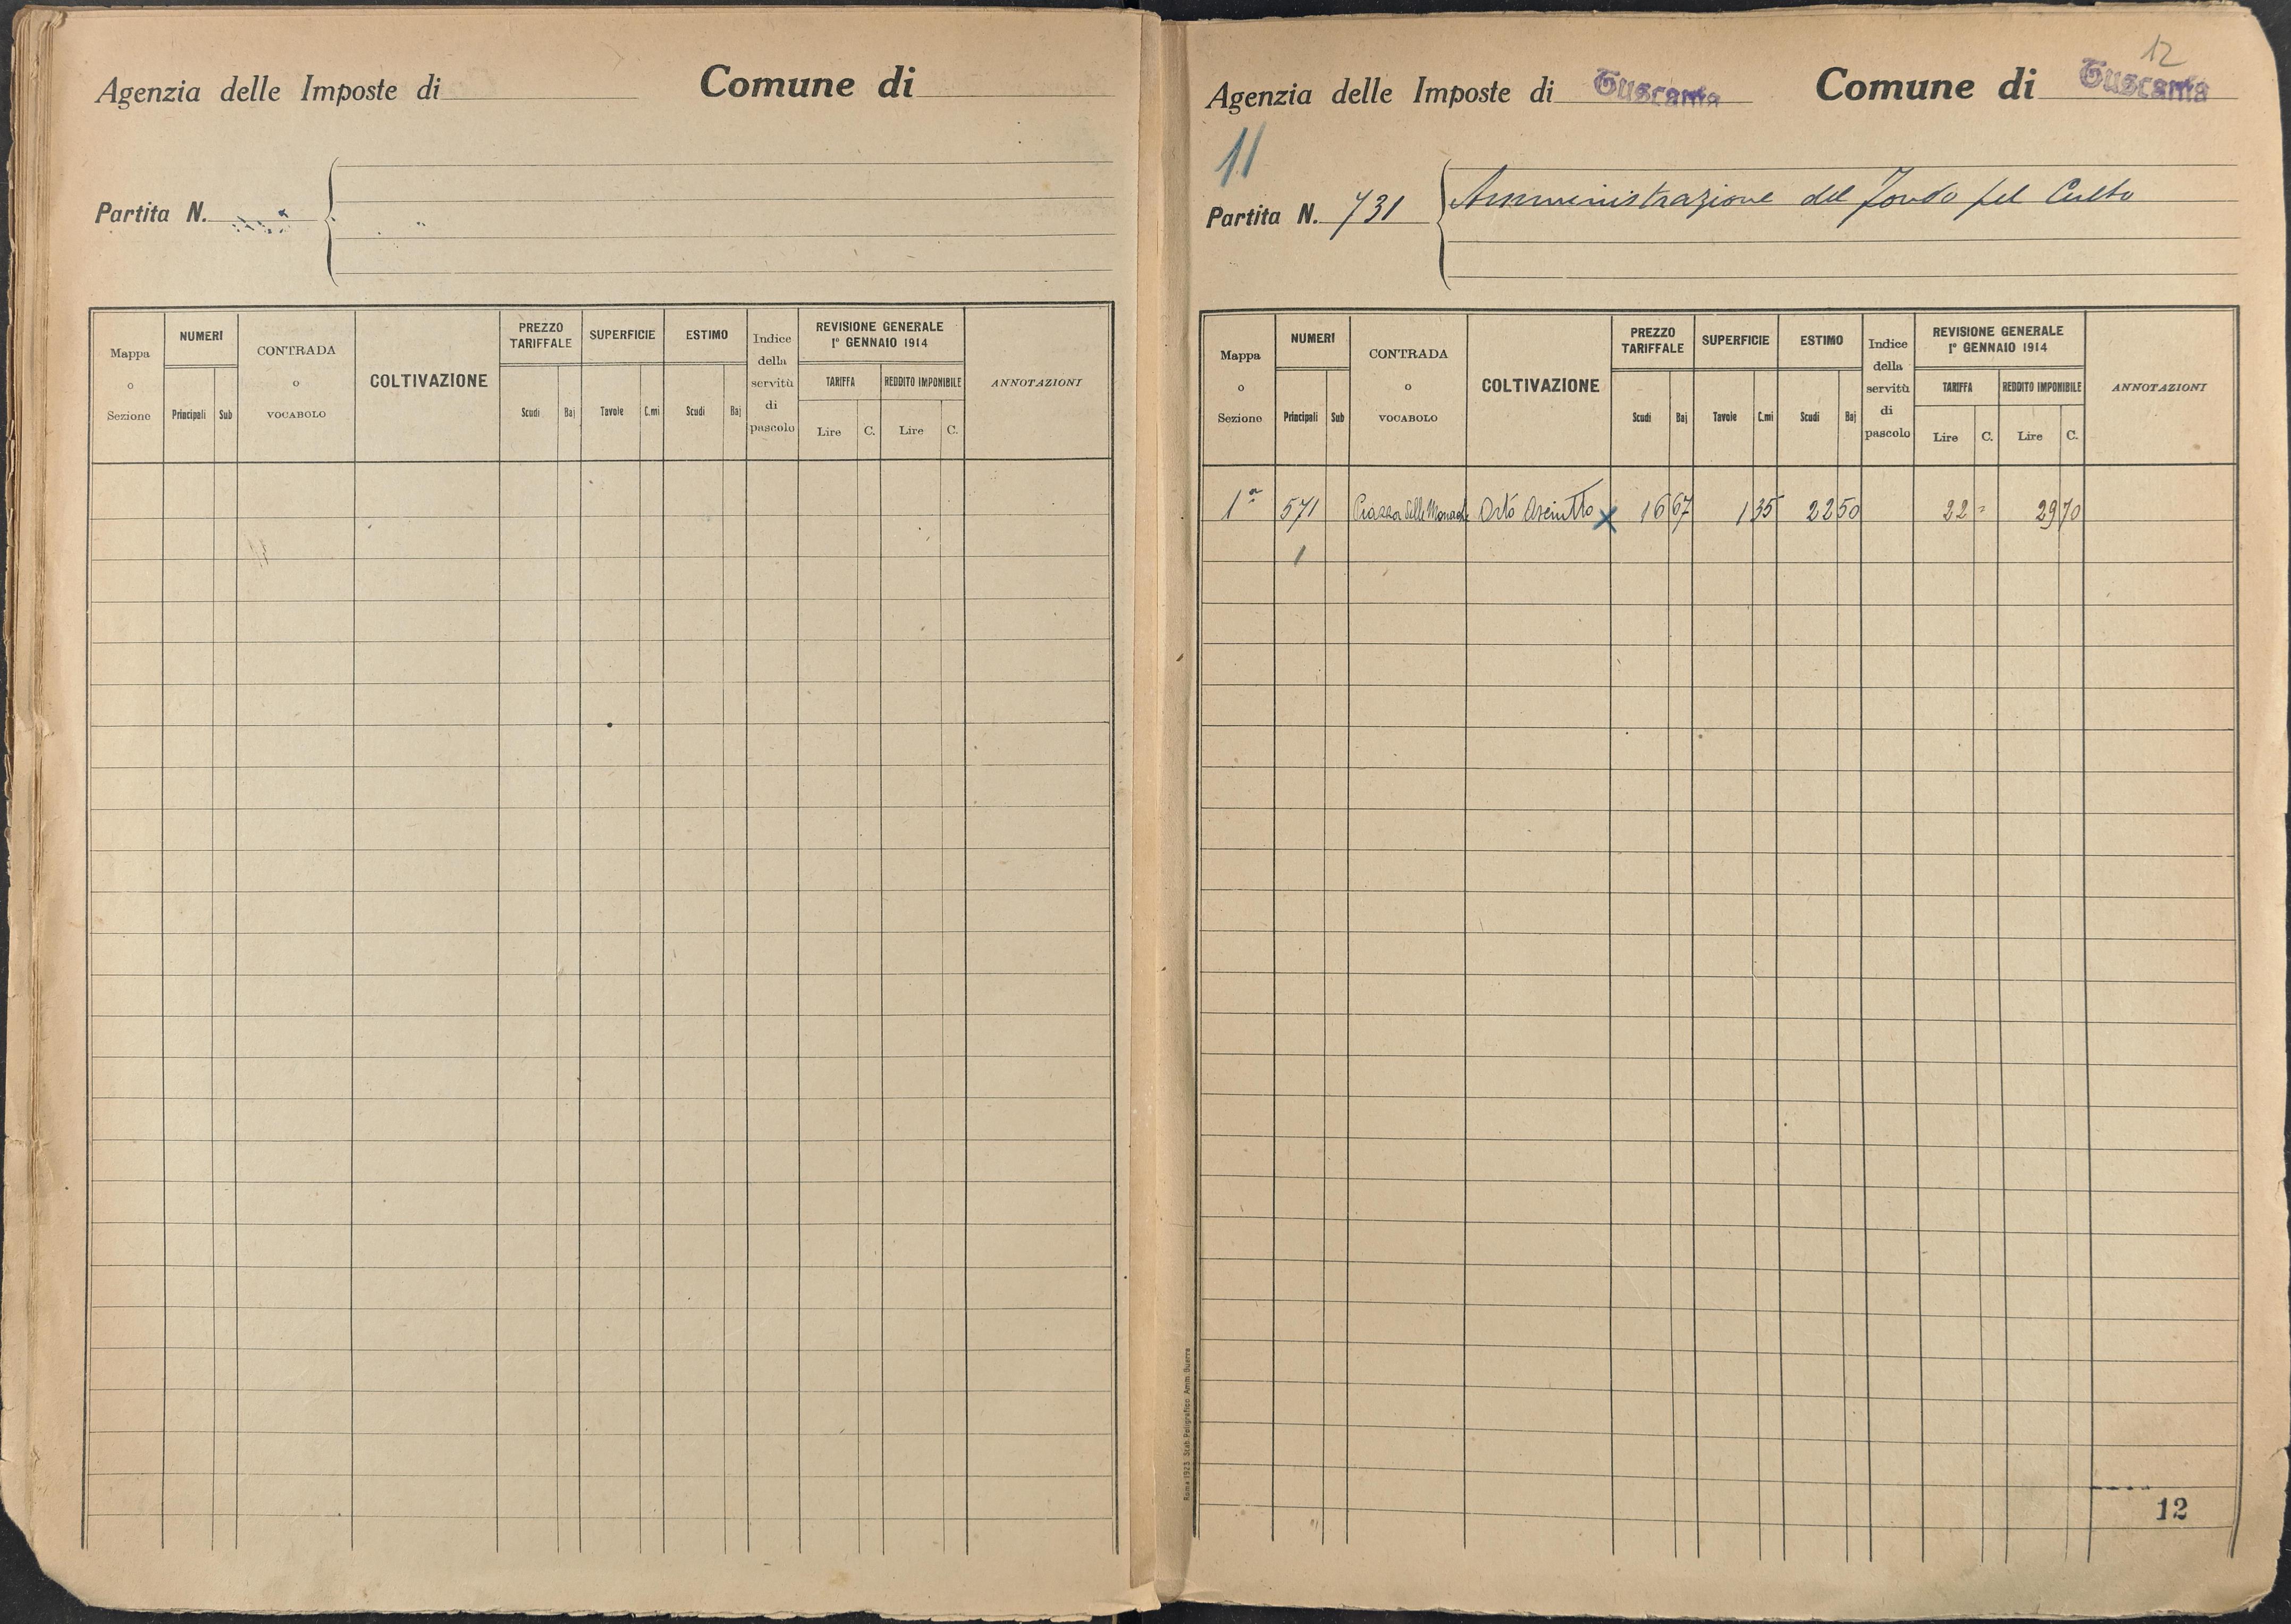 Agenzia delle Imposte di Comune di
Partita N.
Mappa o Sezione
NUMERI
Principali Sub
CONTRADA o VOCABOLO
COLTIVAZIONE
PREZZO TARIFFALE
Scudi Baj
SUPERFICIE
Tavole C.mi
ESTIMO
Scudi Baj
Indice della servitù di pascolo
REVISIONE GENERALE
1° GENNAIO 1914
TARIFFA REDDITO IMPONIBILE
Lire C. Lire C.
ANNOTAZIONI
12
Agenzia delle Imposte di Tuscania Comune di Tuscania
11
Partita N. 731 Amministrazione del Fondo pel Culto
Mappa o Sezione
NUMERI
Principali Sub
CONTRADA o VOCABOLO
COLTIVAZIONE
PREZZO TARIFFALE
Scudi Baj
SUPERFICIE
Tavole C.mi
ESTIMO
Scudi Baj
Indice della servitù di pascolo
REVISIONE GENERALE
1° GENNAIO 1914
TARIFFA REDDITO IMPONIBILE
Lire C. Lire C.
ANNOTAZIONI
1ª 571 Piazza delle Monache Orto Asciutto x 16 67 1 35 22 50 22 = 29 70
1
Roma 1923 Stab. Poligrafico Amm. Guerra
12